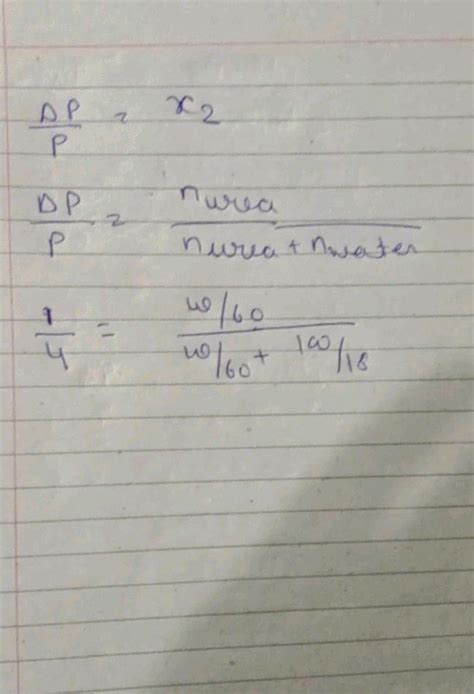 ΔP/P = x2
ΔP/P = nurea / nurea + nwater
1/4 = w/60 / w/60 + 100/18